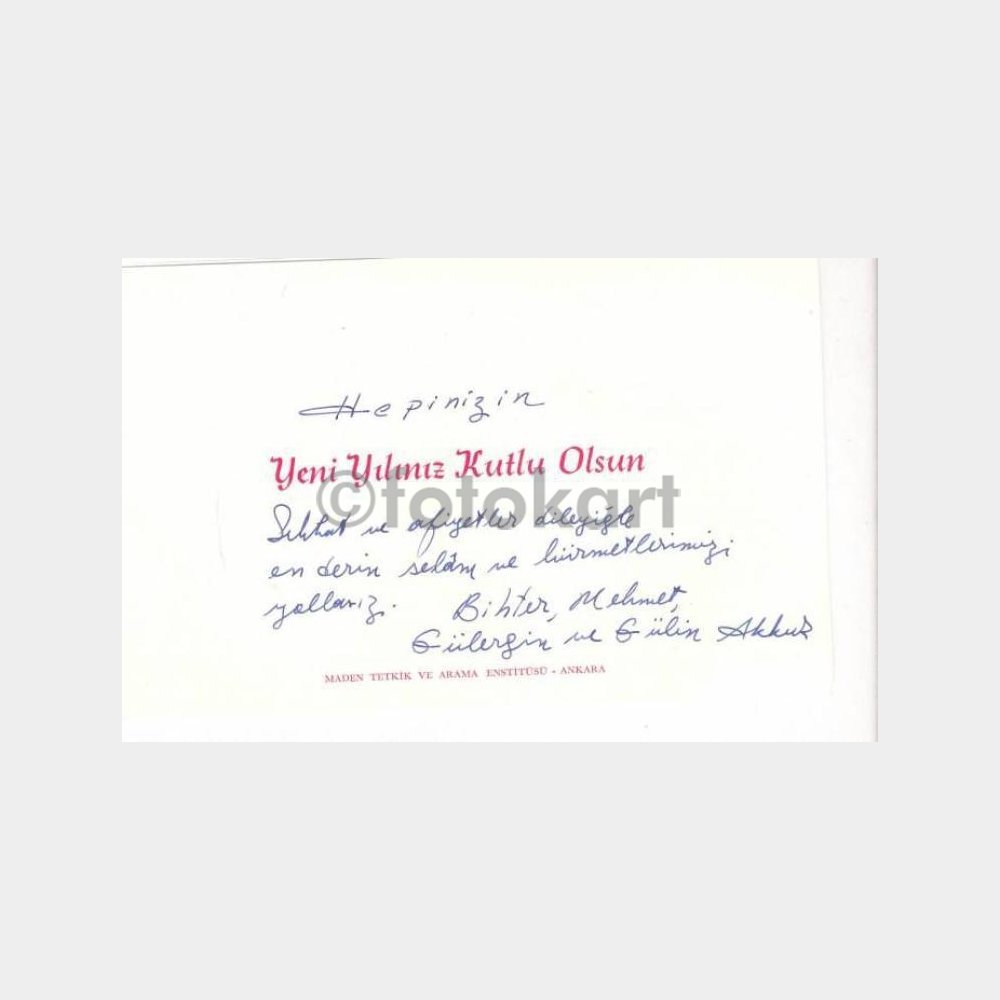 Hepinizin
Yeni Yılınız Kutlu Olsun
©fotokart
Sıhhat ve afiyetler dileyiğle
en derin selâm ve hürmetlerimizi
yollarız. Bihter, Mehmet,
Gülergin ve Gülin Akkuş
MADEN TETKİK VE ARAMA ENSTİTÜSÜ - ANKARA